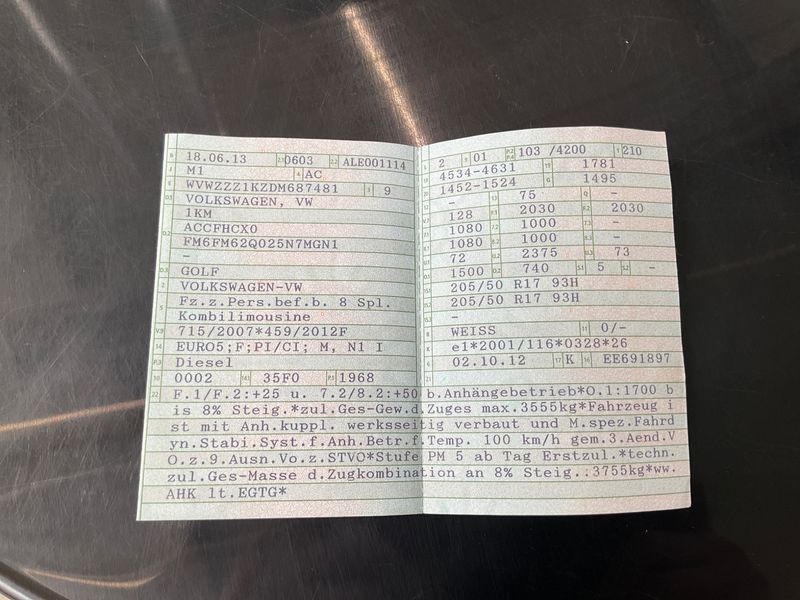 B 18.06.13 2.1 0603 2.2 ALE001114
J M1 4 AC
E WVWZZZ1KZDM687481 3 9
D.1 VOLKSWAGEN, VW
1KM
D.2 ACCFHCX0
FM6FM62Q025N7MGN1
-
D.3 GOLF
2 VOLKSWAGEN-VW
5 Fz.z.Pers.bef.b. 8 Spl.
Kombilimousine
V.9 715/2007*459/2012F
14 EURO5;F;PI/CI; M, N1 I
P.3 Diesel
10 0002 14.1 35F0 P.1 1968
L 2 9 01 P.2 P.4 103 /4200 T 210
4534-4631 19 1781
1452-1524 G 1495
- 13 75 Q -
128 F.1 2030 F.2 2030
1080 7.2 1000 7.3 -
1080 8.2 1000 8.3 -
72 U.2 2375 U.3 73
O.1 1500 O.2 740 S.1 5 S.2 -
15.1 205/50 R17 93H
15.2 205/50 R17 93H
15.3 -
R WEISS 11 0/-
K e1*2001/116*0328*26
6 02.10.12 17 K 16 EE691897
21
22 F.1/F.2:+25 u. 7.2/8.2:+50 b.Anhängebetrieb*O.1:1700 b
is 8% Steig.*zul.Ges-Gew.d.Zuges max.3555kg*Fahrzeug i
st mit Anh.kuppl. werksseitig verbaut und M.spez.Fahrd
yn.Stabi.Syst.f.Anh.Betr.f.Temp. 100 km/h gem.3.Aend.V
O.z.9.Ausn.Vo.z.STVO*Stufe PM 5 ab Tag Erstzul.*techn.
zul.Ges-Masse d.Zugkombination an 8% Steig.:3755kg*ww.
AHK lt.EGTG*